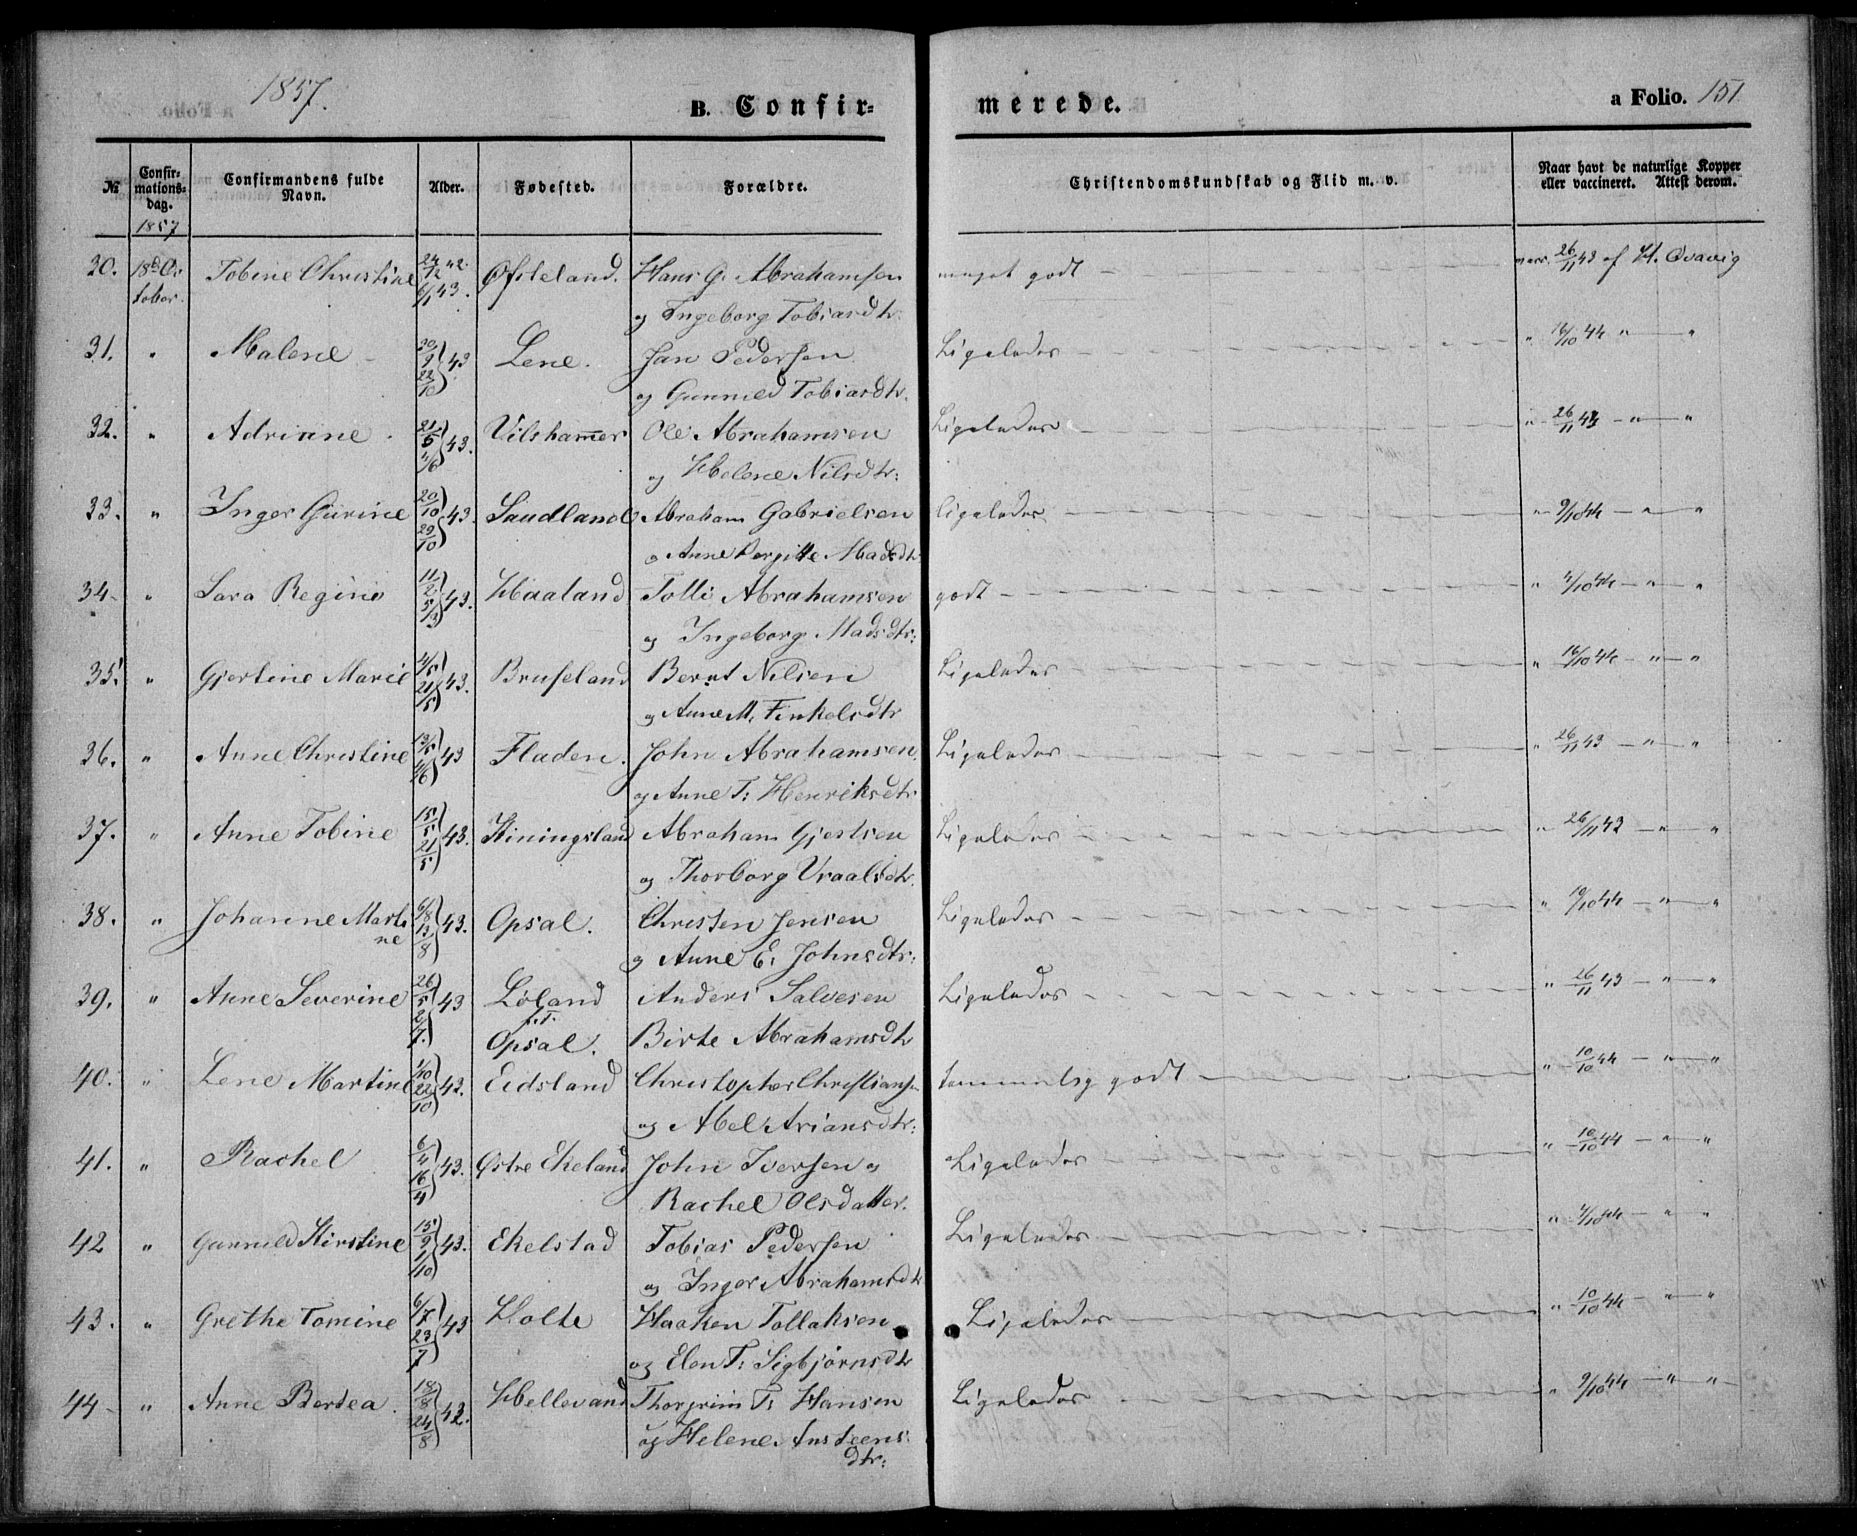 1857.
B. Confir-
merede.
a Folio. 151
№
Confir-
mations-
dag.
1857
Confirmandens fulde
Navn.
Alder.
Fødested.
Forældre.
Christendomskundskab og Flid m. v.
Naar havt de naturlige Kopper
eller vaccineret. Attest derom.
30. 18d Oc Tobine Christine 24/12 42. Øfsteland. Hans G. Abrahamsen meget godt vacc. 26/11 43 af H. Qvavig
tober. 6/1 43. og Ingeborg Tobiasdtr.
31. " Malene 30/9 43 Lene. Jan Pedersen Ligeledes " 16/10 44 " "
22/10 og Gunnild Tobiasdtr.
32. " Adriane 21/5 43. Vilshammer Ole Abrahamsen Ligeledes " 26/11 43 " "
4/6 og Helene Nilsdtr:
33. " Inger Gurine 20/10 43. Saudland Abraham Gabrielsen Ligeledes " 9/10 44 " "
29/10 og Anne Bergitte Madsdtr
34 " Sara Regine 11/2 43. Haaland Tolli Abrahamsen godt " 4/10 44 " "
5/3 og Ingeborg Madsdtr:
35. " Gjertine Marie 4/5 43. Bruseland Bernt Nilsen Ligeledes " 16/10 44 " "
21/5 og Anne M. Finkelsdtr
36. " Anne Christine 13/5 43 Fladen. John Abrahamsen Ligeledes " 26/11 43 " "
4/6 og Anne T: Henriksdtr
37. " Anne Tobine 15/5 43. Kiningsland Abraham Gjertsen Ligeledes " 26/11 43 " "
21/5 og Thorborg Vraalsdtr.
38. " Johanne Marti 6/8 43. Opsal. Christen Jensen Ligeledes " 10/10 44 " "
ne 13/8 og Anne E. Johnsdtr:
39. " Anne Severine 26/5 43 Løland Anders Salvesen Ligeledes " 26/11 43 " "
2/7 f.T.
Opsal. Birte Abrahamsdtr
40. " Lene Martine 1/10 43. Eidsland Christopher Christiansen temmelig godt " 10/10 44 " "
22/10 og Abel Ariansdtr:
41. " Rachel 6/4 43. Østre Ekeland John Iversen og Ligeledes " 10/10 44 " "
16/4 Rachel Olsdatter.
42 " Gunnild Kirstine 15/9 43. Ekelstad Tobias Pedersen Ligeledes " 4/10 44 " "
1/10 og Inger Abrahamsdtr
43. " Grethe Tomine 6/7 43 Holte Haaken Tollaksen Ligeledes " 10/10 44 " "
23/7 og Elen T: Sigbjørnsdtr
44 " Anne Bertea. 18/8 42. Hellevand Thorgrim T: Hansen Ligeledes " 9/10 44 " "
24/8 og Helene Ansteens
dtr: